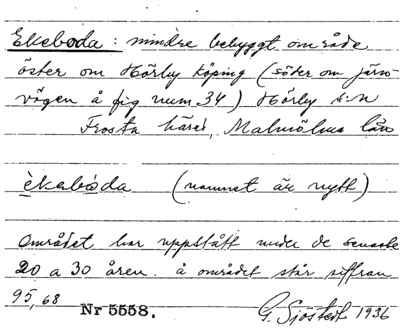 Ekeboda: mindre bebyggt område
öster om Hörby köping (söder om järn-
vägen å fig num. 34) Hörby s:n
Frosta härad, Malmöhus län
èkabóda (namnet är nytt)
Området har uppstått under de senaste
20 a 30 åren. å området står siffran
95,68
Nr 5558. G. Sjöstedt 1936